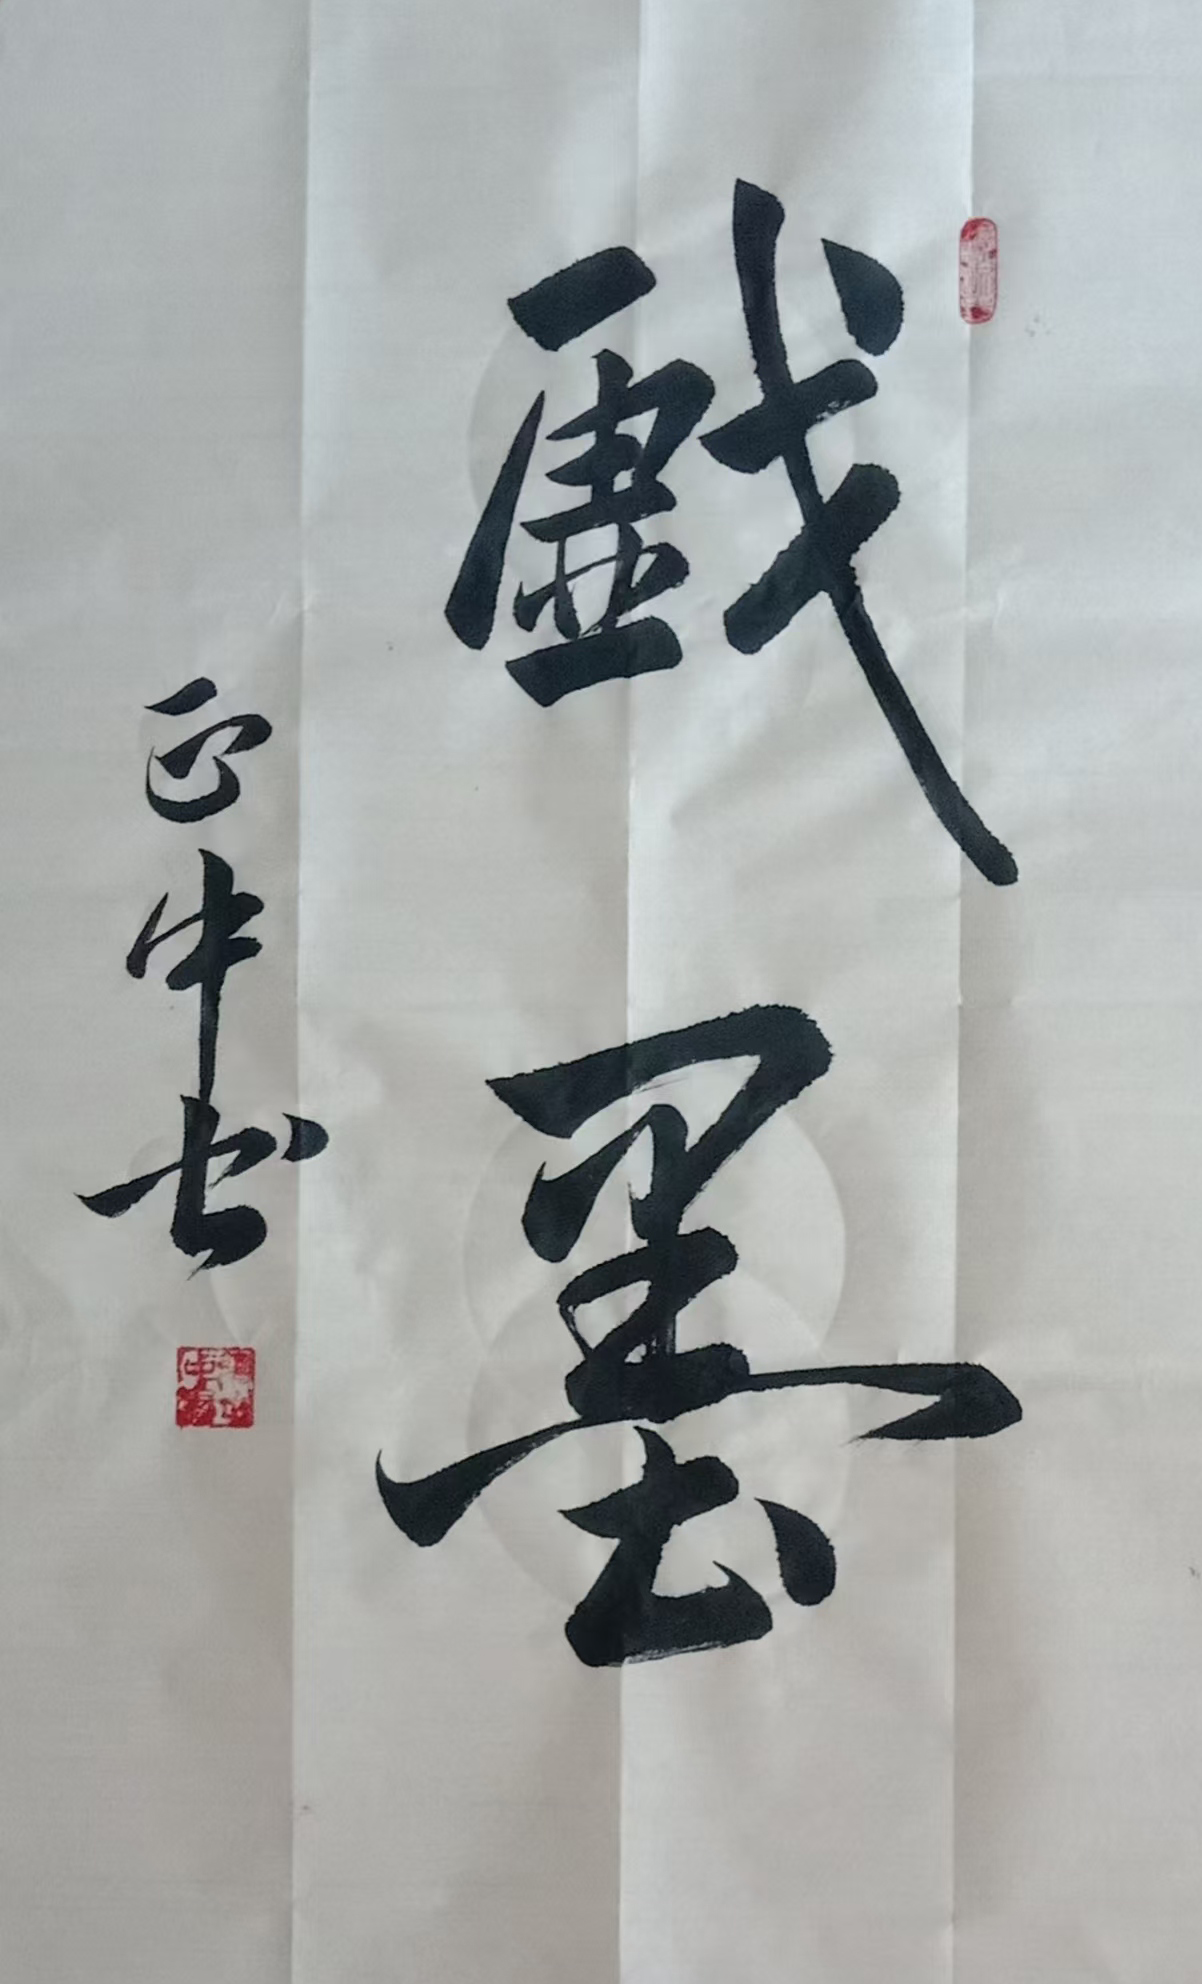 戲墨
正中书